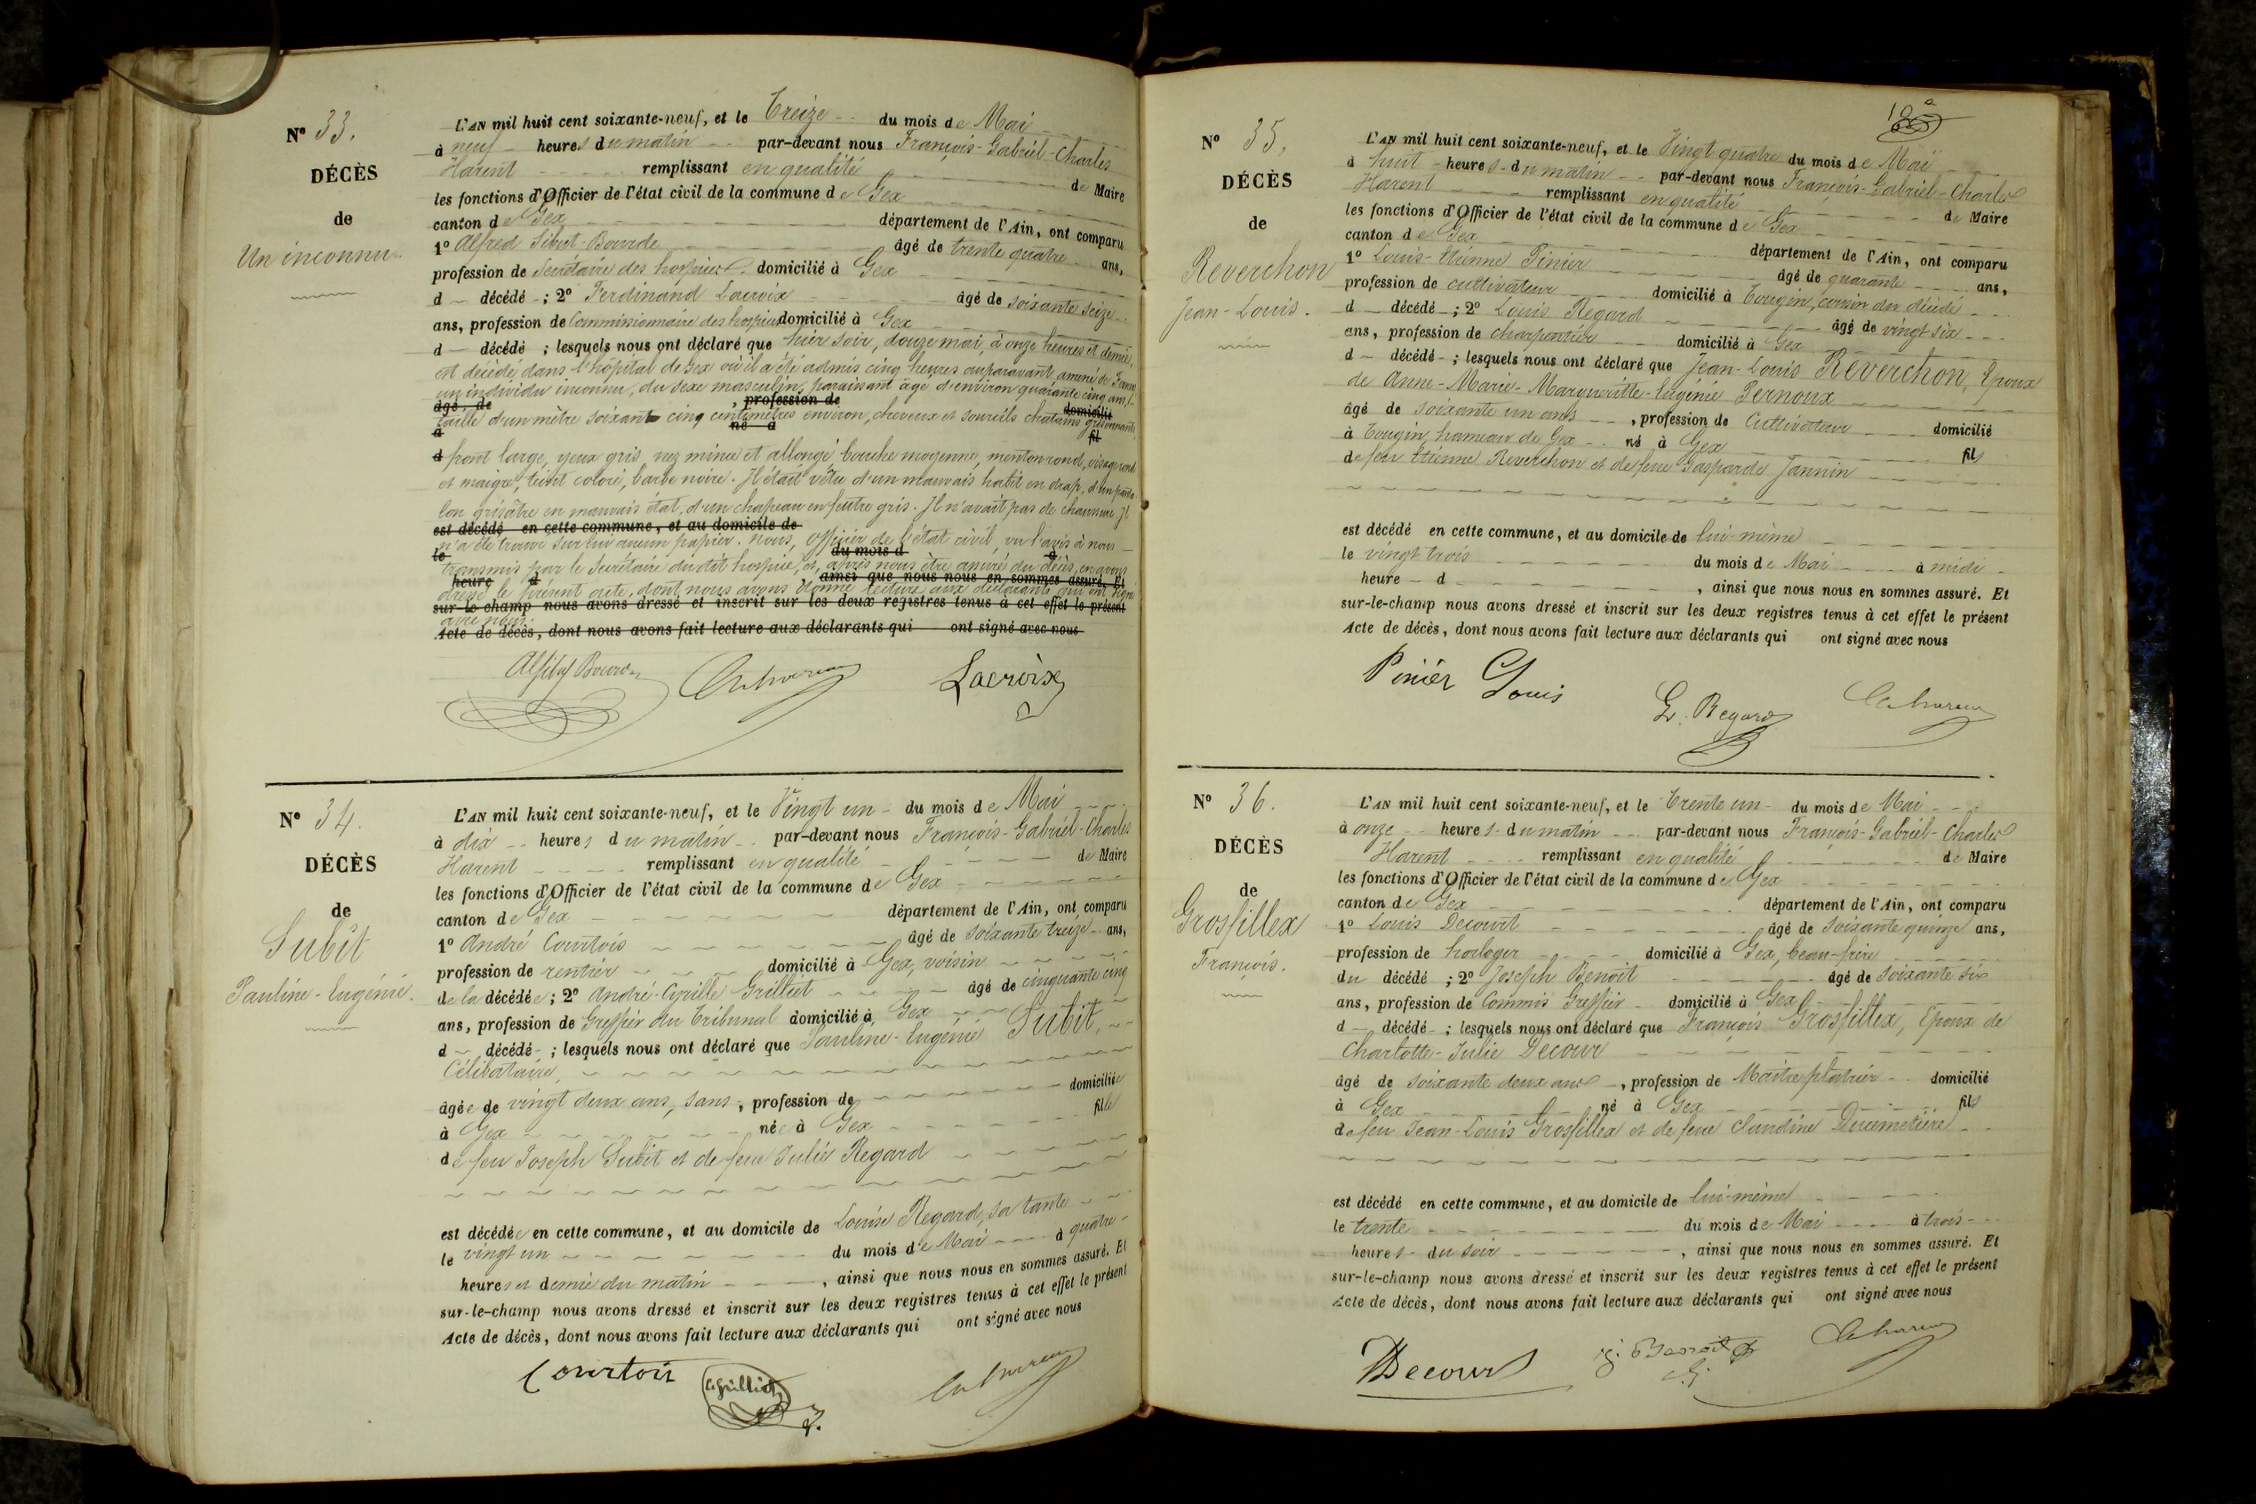 N° 33.
DÉCÈS
de
Un inconnu.
L'AN mil huit cent soixante-neuf, et le Treize du mois de Mai
à neuf heures du matin par-devant nous François-Gabriel-Charles
Harent remplissant en qualité de Maire
les fonctions d'Officier de l'état civil de la commune de Gex
canton de Gex département de l'Ain, ont comparu
1° Alfred Sibut-Bourde âgé de trente quatre ans,
profession de Secrétaire des hospices domicilié à Gex
d décédé ; 2° Ferdinand Lacroix âgé de soixante seize
ans, profession de Commissionnaire des hospices domicilié à Gex
d décédé ; lesquels nous ont déclaré que hier soir, douze mai, à onze heures et demie,
est décédé dans l'hôpital de Gex où il a été admis cinq heures auparavant amené de
un individu inconnu, du sexe masculin, paraissant âgé d'environ quarante cinq ans,
âgé de , profession de domicilié
taille d'un mètre soixante cinq centimètres environ, cheveux et sourcils chatains grisonnants
à né à fil
d front large, yeux gris, nez mince et allongé bouche moyenne, menton rond, visage rond
et maigre, teint coloré, barbe noire. Il était vêtu d'un mauvais habit en drap, d'un panta-
lon grisâtre en mauvais état, d'un chapeau en feutre gris. Il n'avait pas de chaussure. Il
est décédé en cette commune, et au domicile de
n'a été trouvé sur lui aucun papier. Nous, Officier de l'état civil, vu l'avis à nous
le du mois d à
transmis par le Secrétaire du dit hospice, et, après nous être assurés du décès, en avons
heure d ainsi que nous nous en sommes assuré. Et
dressé le présent acte, dont nous avons donné lecture aux déclarants qui ont signé
sur-le-champ nous avons dressé et inscrit sur les deux registres tenus à cet effet le présent
avec nous.
Acte de décès, dont nous avons fait lecture aux déclarants qui ont signé avec nous
Lacroix
N° 34.
DÉCÈS
de
Subit
Pauline-Eugénie.
L'AN mil huit cent soixante-neuf, et le Vingt un du mois de Mai
à dix heures du matin par-devant nous François-Gabriel-Charles
Harent remplissant en qualité de Maire
les fonctions d'Officier de l'état civil de la commune de Gex
canton de Gex département de l'Ain, ont comparu
1° André Courtois âgé de soixante treize ans,
profession de rentier domicilié à Gex, voisin
de la décédée ; 2° André-Cyrille Grilliet âgé de cinquante cinq
ans, profession de Greffier du Tribunal domicilié à Gex
d décédé ; lesquels nous ont déclaré que Pauline-Eugénie Subit,
Célibataire,
âgée de vingt deux ans, sans, profession de domiciliée
à Gex née à Gex fille
de feu Joseph Subit et de feue Julie Regard
est décédée en cette commune, et au domicile de Louise Regard, sa tante
le vingt un du mois de Mai à quatre
heures et demie du matin , ainsi que nous nous en sommes assuré. Et
sur-le-champ nous avons dressé et inscrit sur les deux registres tenus à cet effet le présent
Acte de décès, dont nous avons fait lecture aux déclarants qui ont signé avec nous
Courtois
N° 35.
DÉCÈS
de
Reverchon
Jean-Louis.
L'AN mil huit cent soixante-neuf, et le Vingt quatre du mois de Mai
à huit heures du matin par-devant nous François-Gabriel-Charles
Harent remplissant en qualité de Maire
les fonctions d'Officier de l'état civil de la commune de Gex
canton de Gex département de l'Ain, ont comparu
1° Louis-Etienne Pinier âgé de quarante ans,
profession de cultivateur domicilié à Tougin, cousin du décédé
d décédé ; 2° Louis Regard âgé de vingt six
ans, profession de charpentier domicilié à Gex
d décédé ; lesquels nous ont déclaré que Jean-Louis Reverchon, Epoux
de Anne-Marie-Margueritte-Eugénie Pernoux
âgé de soixante un ans , profession de Cultivateur domicilié
à Tougin, hameau de Gex né à Gex fils
de feu Etienne Reverchon et de feue Gasparde Jannin
est décédé en cette commune, et au domicile de lui-même
le vingt trois du mois de Mai à midi
heure d , ainsi que nous nous en sommes assuré. Et
sur-le-champ nous avons dressé et inscrit sur les deux registres tenus à cet effet le présent
Acte de décès, dont nous avons fait lecture aux déclarants qui ont signé avec nous
Pinier Louis
L. Regard
N° 36.
DÉCÈS
de
Grosfillex
François.
L'AN mil huit cent soixante-neuf, et le Trente un du mois de Mai
à onze heures du matin par-devant nous François-Gabriel-Charles
Harent remplissant en qualité de Maire
les fonctions d'Officier de l'état civil de la commune de Gex
canton de Gex département de l'Ain, ont comparu
1° Louis Decourt âgé de soixante quinze ans,
profession de horloger domicilié à Gex, beau-frère
du décédé ; 2° Joseph Benoit âgé de soixante six
ans, profession de Commis Greffier domicilié à Gex
d décédé ; lesquels nous ont déclaré que François Grosfillex, Epoux de
Charlotte-Julie Decour
âgé de soixante deux ans , profession de Maître plâtrier domicilié
à Gex né à Gex fils
de feu Jean-Louis Grosfillex et de feue Claudine Ducimetière
est décédé en cette commune, et au domicile de lui-même
le trente du mois de Mai à trois
heures du soir , ainsi que nous nous en sommes assuré. Et
sur-le-champ nous avons dressé et inscrit sur les deux registres tenus à cet effet le présent
Acte de décès, dont nous avons fait lecture aux déclarants qui ont signé avec nous
Decour